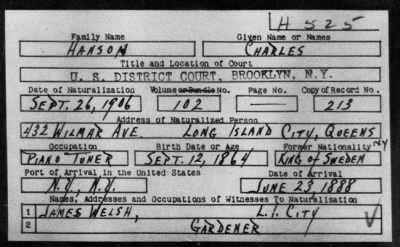 H 525
Family Name Given Name or Names
HANSON CHARLES
Title and Location of Court
U. S. DISTRICT COURT, BROOKLYN, N.Y.
Date of Naturalization Volume or Bundle No. Page No. Copy of Record No.
SEPT. 26, 1906 102 — 213
Address of Naturalized Person
432 WILMAR AVE. LONG ISLAND CITY, QUEENS
Occupation Birth Date or Age Former Nationality NY
PIANO-TUNER SEPT. 12, 1864 KING OF SWEDEN
Port of Arrival in the United States Date of Arrival
N.Y., N.Y. JUNE 23, 1888
Names, Addresses and Occupations of Witnesses To Naturalization
1 JAMES WELSH, L.I. CITY
2 GARDENER